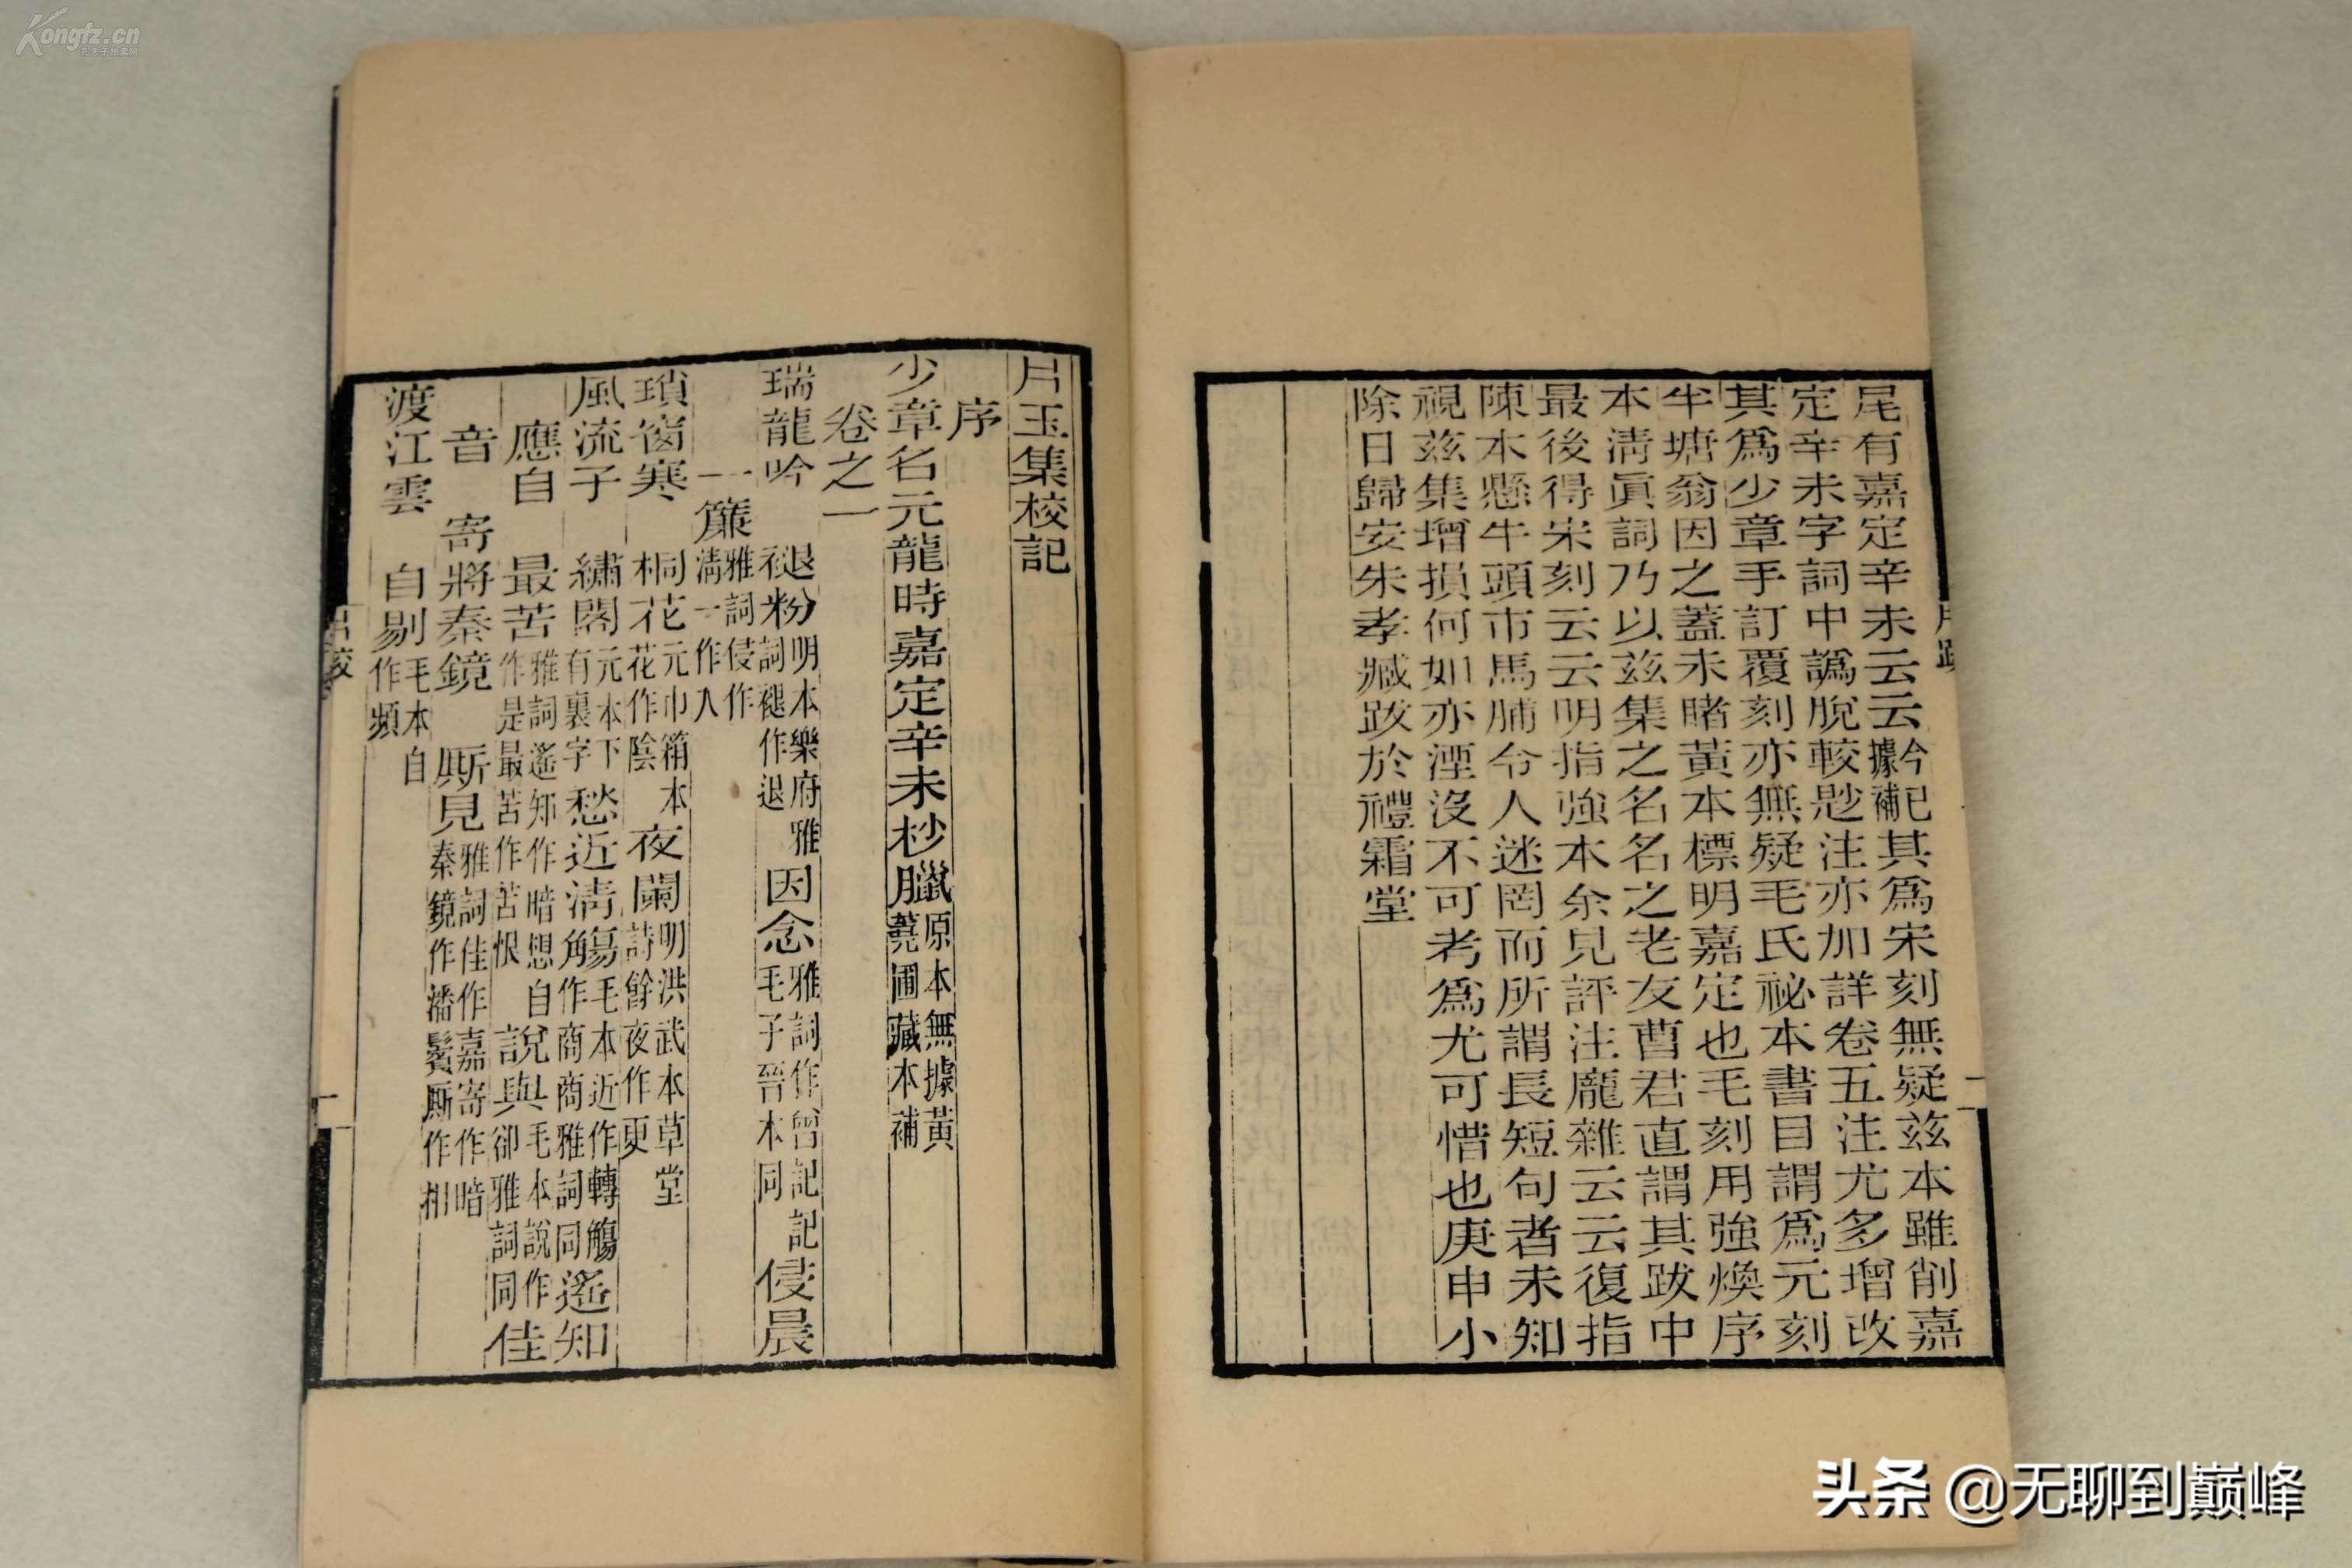 Kongfz.cn
尾有嘉定辛未云云今已據補其爲宋刻無疑茲本雖削嘉
定辛未字詞中譌脫較尟注亦加詳卷五注尤多增改
其爲少章手訂覆刻亦無疑毛氏祕本書目謂爲元刻
半塘翁因之蓋未睹黃本標明嘉定也毛刻用強煥序
本淸眞詞乃以茲集之名名之老友曹君直謂其跋中
最後得宋刻云云明指強本余見評注龐雜云云復指
陳本懸牛頭市馬脯令人迷罔而所謂長短句者未知
視茲集增損何如亦湮沒不可考爲尤可惜也庚申小
除日歸安朱孝臧跋於禮霜堂
片玉集校記
序
少章名元龍時嘉定辛未杪臘原本無據黃蕘圃藏本補
卷之一
瑞龍吟 褪粉明本樂府雅詞褪作退因念雅詞作曾記記毛子晉本同侵晨
一簾雅詞侵作淸一作人
瑣窗寒 桐花元巾箱本花作陰夜闌明洪武本草堂詩餘夜作更
風流子 繡閣元本下有裏字愁近淸觴毛本近作轉觴角作商商雅詞同遙知
應自 最苦雅詞遙知作暗想自作是最苦作苦恨說與毛本說作卻雅詞同佳
音 寄將秦鏡 厮見雅詞佳作嘉寄作暗秦鏡作潘鬢厮作相
渡江雲 自剔毛本自作頻
片跋
二
片校
一
头条 @无聊到巅峰